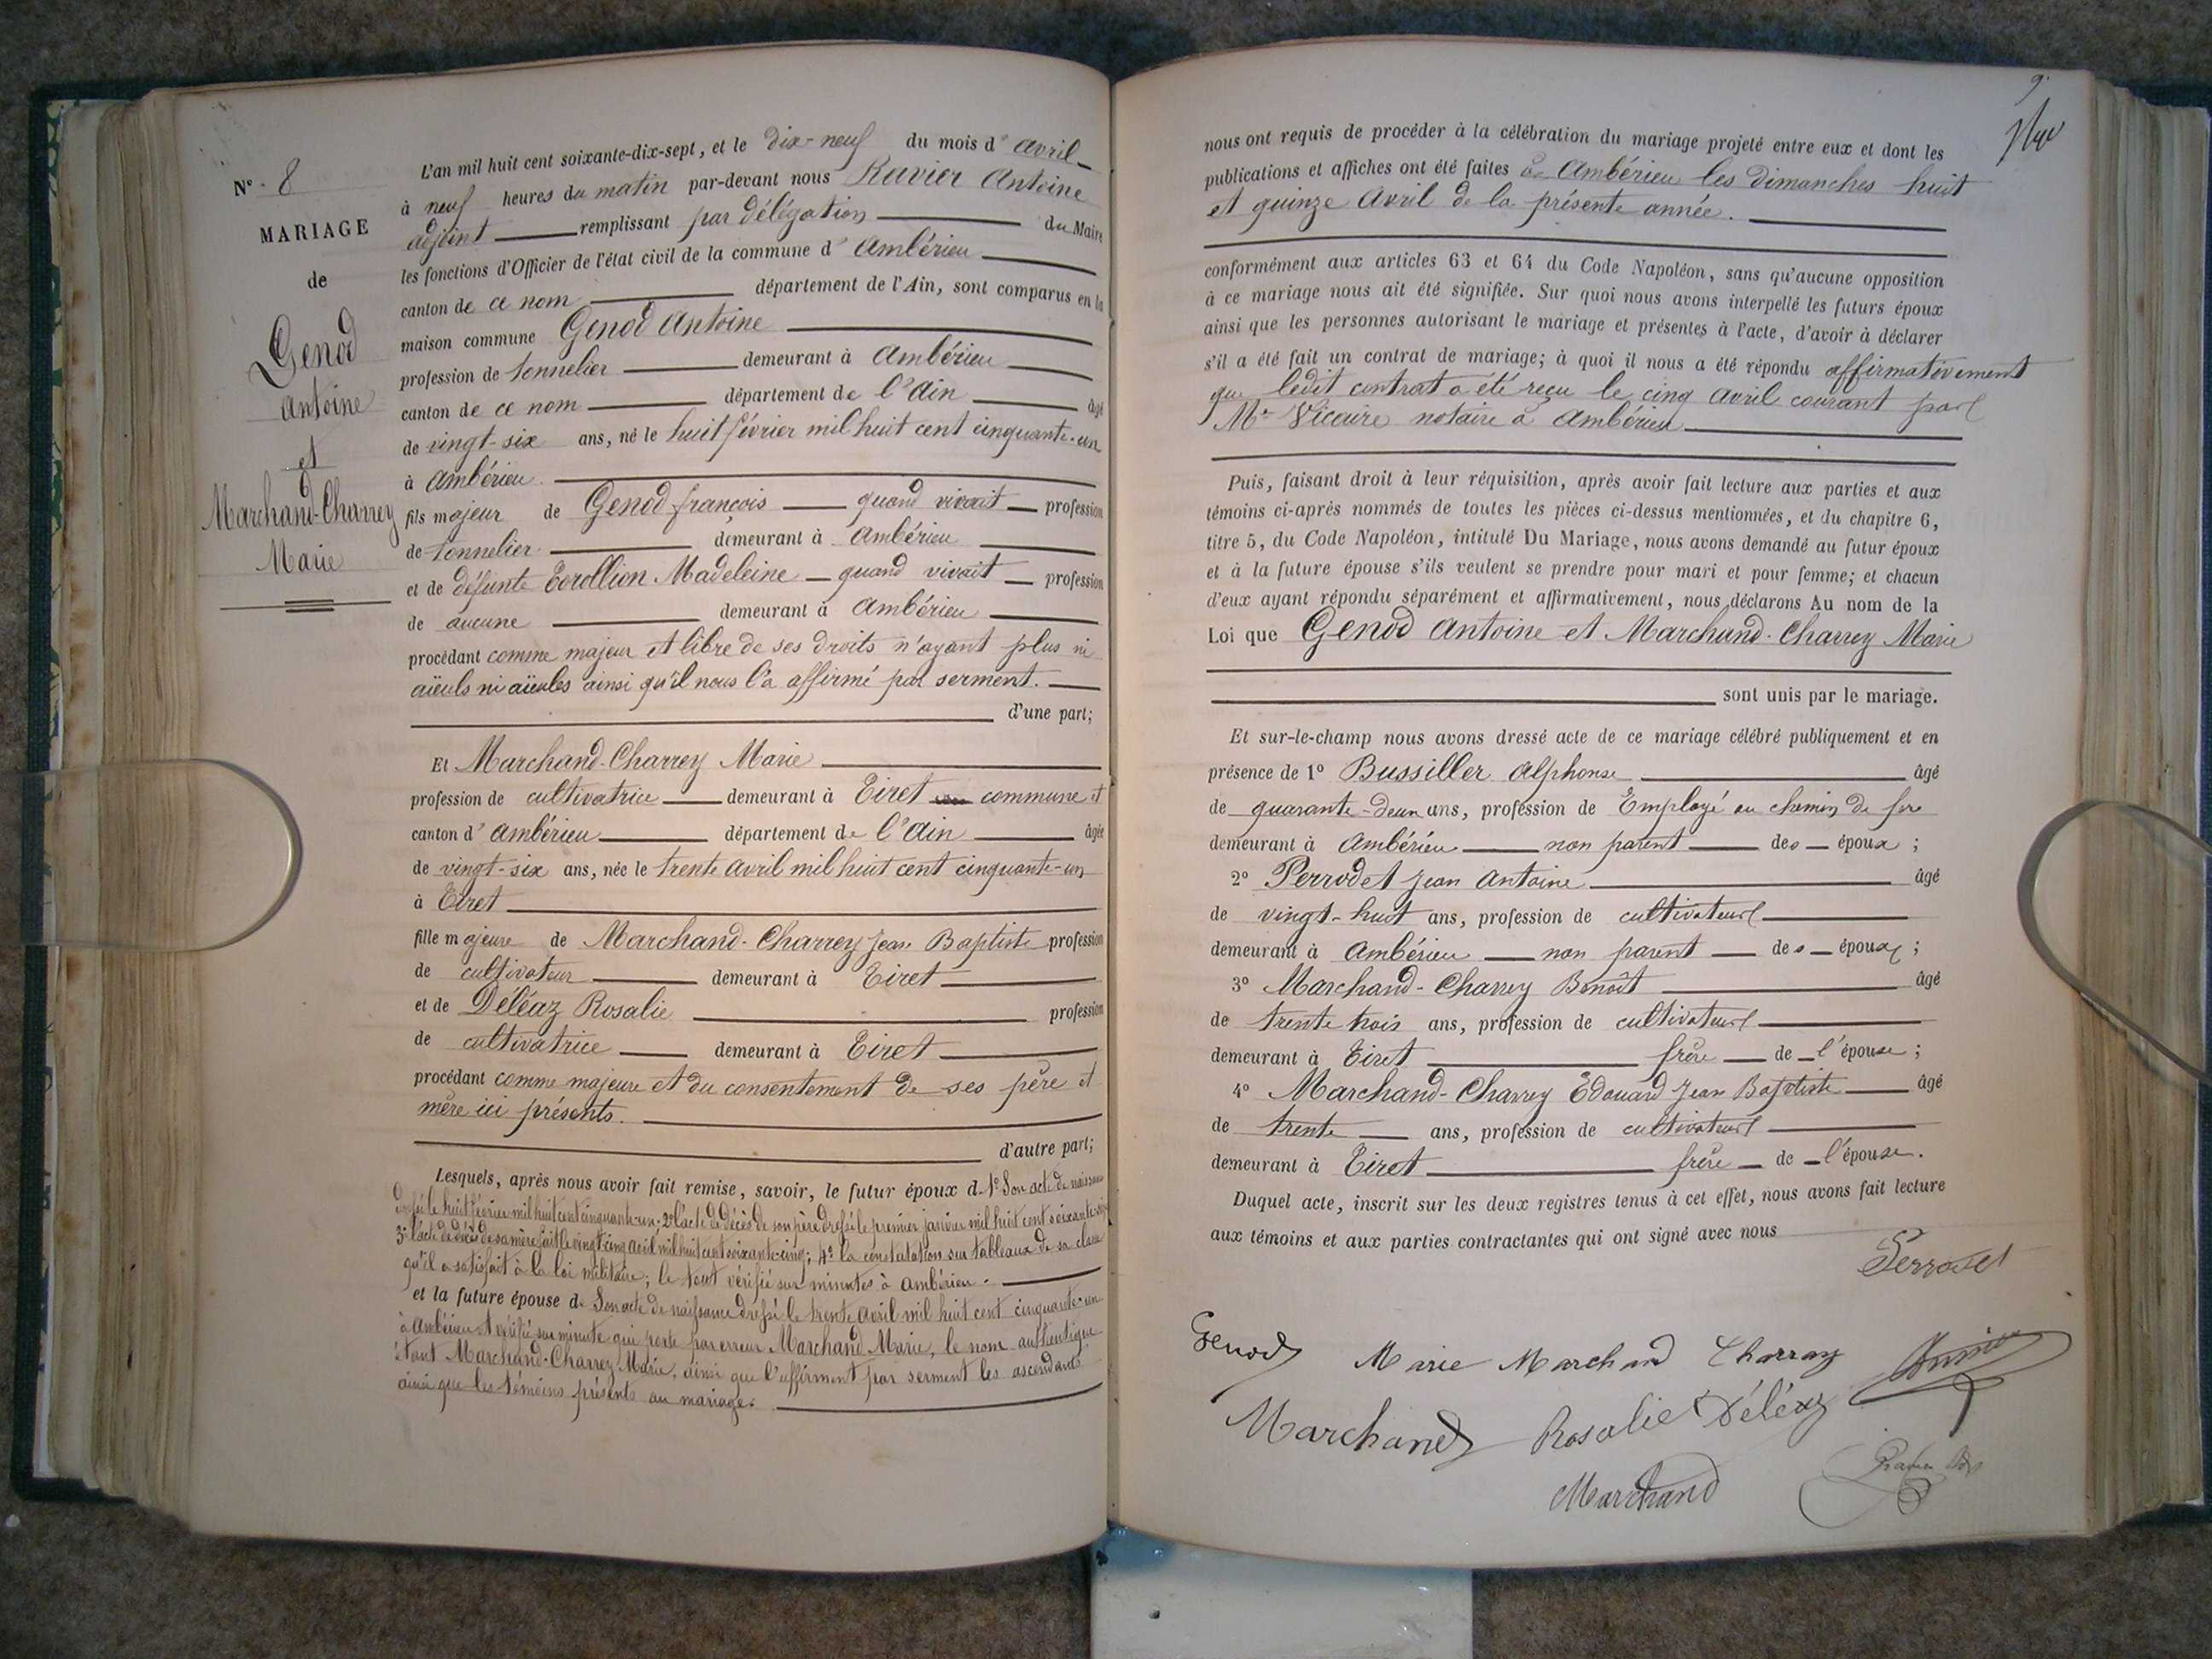 N° 8
MARIAGE
de
Genod
Antoine
et
Marchand-Charrey
Marie
L'an mil huit cent soixante-dix-sept, et le dix-neuf du mois d'avril
à neuf heures du matin par-devant nous Ravier Antoine
adjoint remplissant par délégation du Maire
les fonctions d'Officier de l'état civil de la commune d'Ambérieu
canton de ce nom département de l'Ain, sont comparus en la
maison commune Genod Antoine
profession de tonnelier demeurant à Ambérieu
canton de ce nom département de l'Ain âgé
de vingt-six ans, né le huit février mil huit cent cinquante-un
à Ambérieu
fils majeur de Genod françois quand vivait profession
de tonnelier demeurant à Ambérieu
et de défunte Madeleine quand vivait profession
de aucune demeurant à Ambérieu
procédant comme majeur et libre de ses droits n'ayant plus ni
aïeuls ni aïeules ainsi qu'il nous l'a affirmé par serment.
d'une part;
Et Marchand-Charrey Marie
profession de cultivatrice demeurant à Tiret commune et
canton d'Ambérieu département de l'Ain âgée
de vingt-six ans, née le trente avril mil huit cent cinquante-un
à Tiret
fille majeure de Marchand-Charrey Jean Baptiste profession
de cultivateur demeurant à Tiret
et de Déléaz Rosalie profession
de cultivatrice demeurant à Tiret
procédant comme majeure et du consentement de ses père et
mère ici présents.
d'autre part;
Lesquels, après nous avoir fait remise, savoir, le futur époux d. 1° Son acte de naissance
dressé le huit février mil huit cent cinquante-un; 2° l'acte de décès de son père dressé le premier janvier mil huit cent soixante
3° l'acte de décès de sa mère fait le vingt cinq avril mil huit cent soixante-cinq; 4° la constatation sur tableaux de sa classe
qu'il a satisfait à la loi militaire; le tout vérifié sur minutes à Ambérieu.
et la future épouse de Son acte de naissance dressé le trente avril mil huit cent cinquante-un
à Ambérieu et vérifié sur minute qui porte par erreur Marchand Marie, le nom authentique
étant Marchand-Charrey Marie, ainsi que l'affirment par serment les ascendants
ainsi que les témoins présents au mariage.
9
nous ont requis de procéder à la célébration du mariage projeté entre eux et dont les
publications et affiches ont été faites à Ambérieu les dimanches huit
et quinze avril de la présente année.
conformément aux articles 63 et 64 du Code Napoléon, sans qu'aucune opposition
à ce mariage nous ait été signifiée. Sur quoi nous avons interpellé les futurs époux
ainsi que les personnes autorisant le mariage et présentes à l'acte, d'avoir à déclarer
s'il a été fait un contrat de mariage; à quoi il nous a été répondu affirmativement
que ledit contrat a été reçu le cinq avril courant par
Me Vicaire notaire à Ambérieu
Puis, faisant droit à leur réquisition, après avoir fait lecture aux parties et aux
témoins ci-après nommés de toutes les pièces ci-dessus mentionnées, et du chapitre 6,
titre 5, du Code Napoléon, intitulé Du Mariage, nous avons demandé au futur époux
et à la future épouse s'ils veulent se prendre pour mari et pour femme; et chacun
d'eux ayant répondu séparément et affirmativement, nous déclarons Au nom de la
Loi que Genod Antoine et Marchand-Charrey Marie
sont unis par le mariage.
Et sur-le-champ nous avons dressé acte de ce mariage célébré publiquement et en
présence de 1° Bussiller Alphonse âgé
de quarante-deux ans, profession de Employé au chemin de fer
demeurant à Ambérieu non parent des époux;
2° Perrodet Jean Antoine âgé
de vingt-huit ans, profession de cultivateur
demeurant à Ambérieu non parent des époux;
3° Marchand-Charrey Benoît âgé
de trente trois ans, profession de cultivateur
demeurant à Tiret frère de l'épouse;
4° Marchand-Charrey Edouard Jean Baptiste âgé
de trente ans, profession de cultivateur
demeurant à Tiret frère de l'épouse.
Duquel acte, inscrit sur les deux registres tenus à cet effet, nous avons fait lecture
aux témoins et aux parties contractantes qui ont signé avec nous
Perrodet
Genod Marie Marchand Charray
Marchand Rosalie Déléaz
Marchand